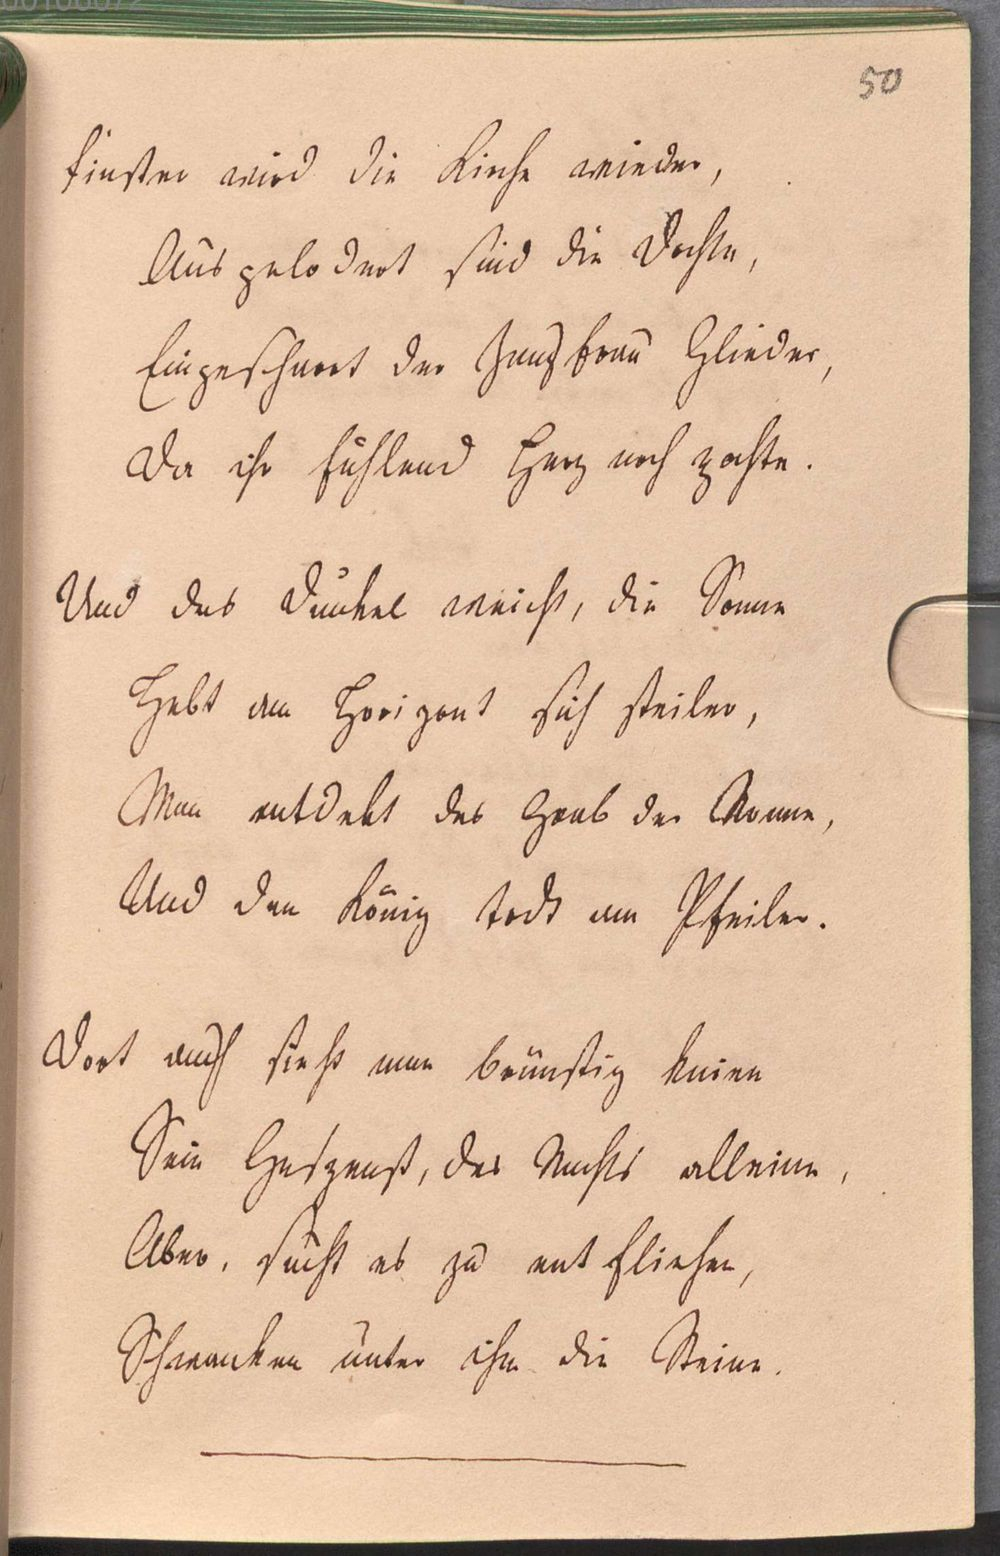 50
Finster wird die Kirche wieder,
Ausgelodert sind die Dochte,
Eingescharrt der Jungfrau Glieder,
Da ihr fühlend Herz noch pochte.
Und das Dunkel weicht, die Sonne
Hebt am Horizont sich steiler,
Man entdekt das Grab der Nonne,
Und den König todt am Pfeiler.
Dort auch sieht man brünstig knien
Sein Gespenst, des Nachts alleine,
Aber, sucht es zu entfliehen,
Schwanken unter ihm die Steine.